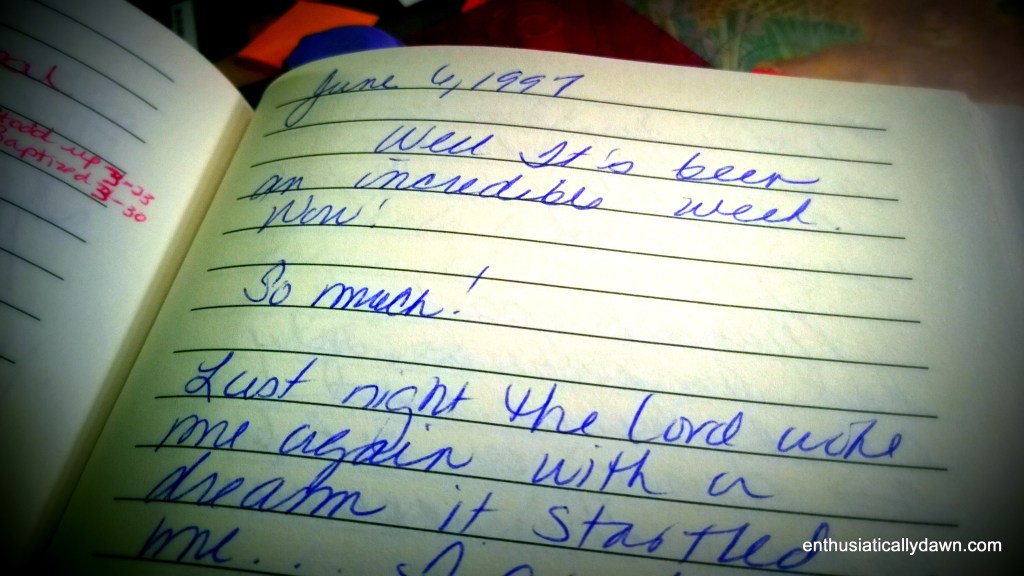 June 6, 1997
Well It's been
an incredible week.
Wow!
So much!
Last night the Lord woke
me again with a
dream it startled
me...
Stood up 3-23
Baptized 3-30
enthusiaticallydawn.com